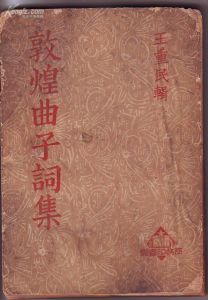 王重民輯
敦煌曲子詞集